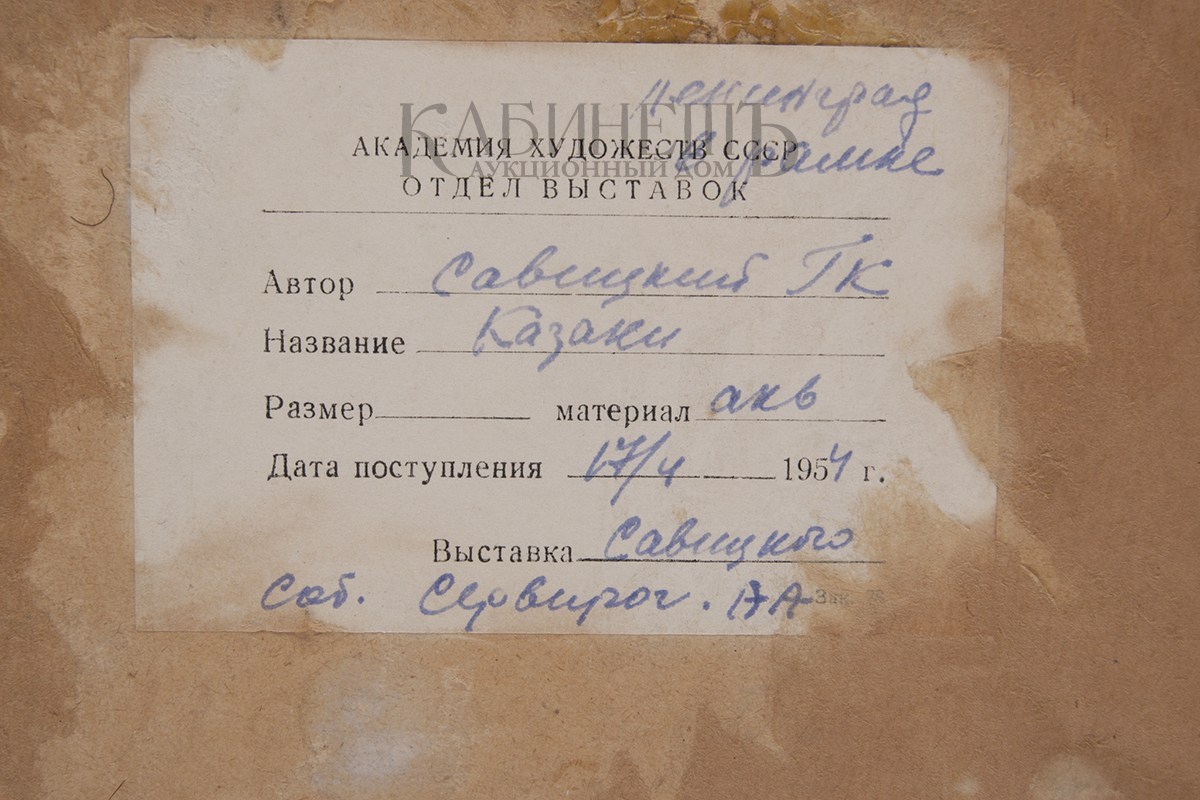 Ленинград
КАБИНЕТЪ
АКАДЕМИЯ ХУДОЖЕСТВ СССР
в рамке
АУКЦИОННЫЙ ДОМ
ОТДЕЛ ВЫСТАВОК
Автор Савицкий ГК
Название Казаки
Размер материал акв
Дата поступления 17/4 1954 г.
Выставка Савицкого
Соб.
Зак.